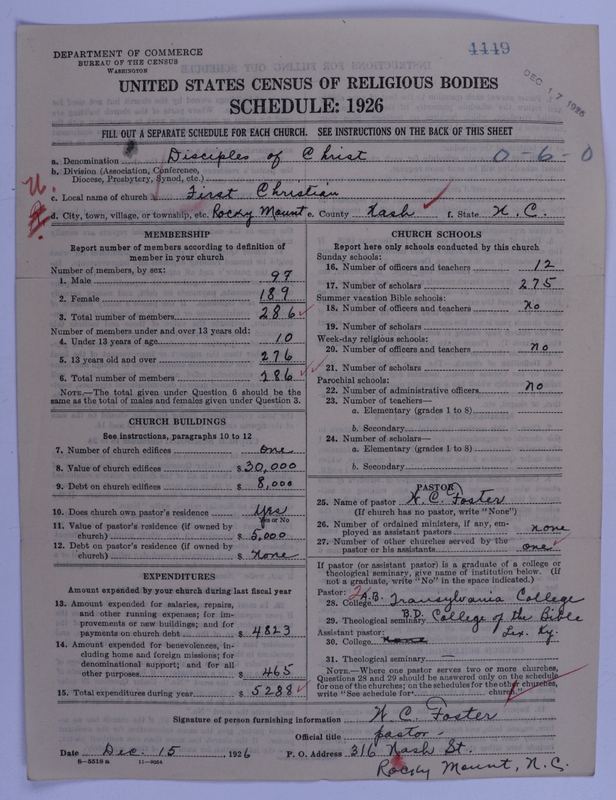 DEPARTMENT OF COMMERCE
BUREAU OF THE CENSUS
WASHINGTON
4449
DEC 17 1926
UNITED STATES CENSUS OF RELIGIOUS BODIES
SCHEDULE: 1926
FILL OUT A SEPARATE SCHEDULE FOR EACH CHURCH. SEE INSTRUCTIONS ON THE BACK OF THIS SHEET
a. Denomination Disciples of Christ 0-6-0
b. Division (Association, Conference, Diocese, Presbytery, Synod, etc.)
c. Local name of church First Christian
U.
d. City, town, village, or township, etc. Rocky Mount e. County Nash f. State N. C.
MEMBERSHIP
Report number of members according to definition of member in your church
Number of members, by sex:
1. Male 97
2. Female 189
3. Total number of members 286
Number of members under and over 13 years old:
4. Under 13 years of age 10
5. 13 years old and over 276
6. Total number of members 286
NOTE.—The total given under Question 6 should be the same as the total of males and females given under Question 3.
CHURCH BUILDINGS
See instructions, paragraphs 10 to 12
7. Number of church edifices one
8. Value of church edifices $30,000
9. Debt on church edifices $ 8,000
10. Does church own pastor's residence Yes
Yes or No
11. Value of pastor's residence (if owned by church) $ 5,000
12. Debt on pastor's residence (if owned by church) $ none
EXPENDITURES
Amount expended by your church during last fiscal year
13. Amount expended for salaries, repairs, and other running expenses; for improvements or new buildings; and for payments on church debt $ 4823
14. Amount expended for benevolences, including home and foreign missions; for denominational support; and for all other purposes $ 465
15. Total expenditures during year $ 5288
CHURCH SCHOOLS
Report here only schools conducted by this church
Sunday schools:
16. Number of officers and teachers 12
17. Number of scholars 275
Summer vacation Bible schools:
18. Number of officers and teachers no
19. Number of scholars
Week-day religious schools:
20. Number of officers and teachers no
21. Number of scholars
Parochial schools:
22. Number of administrative officers no
23. Number of teachers—
a. Elementary (grades 1 to 8)
b. Secondary
24. Number of scholars—
a. Elementary (grades 1 to 8)
b. Secondary
PASTOR
25. Name of pastor W. C. Foster
(If church has no pastor, write "None")
26. Number of ordained ministers, if any, employed as assistant pastors none
27. Number of other churches served by the pastor or his assistants one
If pastor (or assistant pastor) is a graduate of a college or theological seminary, give name of institution below. (If not a graduate, write "No" in the space indicated.)
Pastor:
28. College A.B. Transylvania College
29. Theological seminary B.D. College of the Bible
Assistant pastor: Lex. Ky.
30. College none
31. Theological seminary
NOTE.—Where one pastor serves two or more churches, Questions 28 and 29 should be answered only on the schedule for one of the churches; on the schedules for the other churches, write "See schedule for church."
Signature of person furnishing information W. C. Foster
Official title pastor
Date Dec. 15 1926 P. O. Address 316 Nash St.
8—5518a 11—9024 Rocky Mount, N.C.